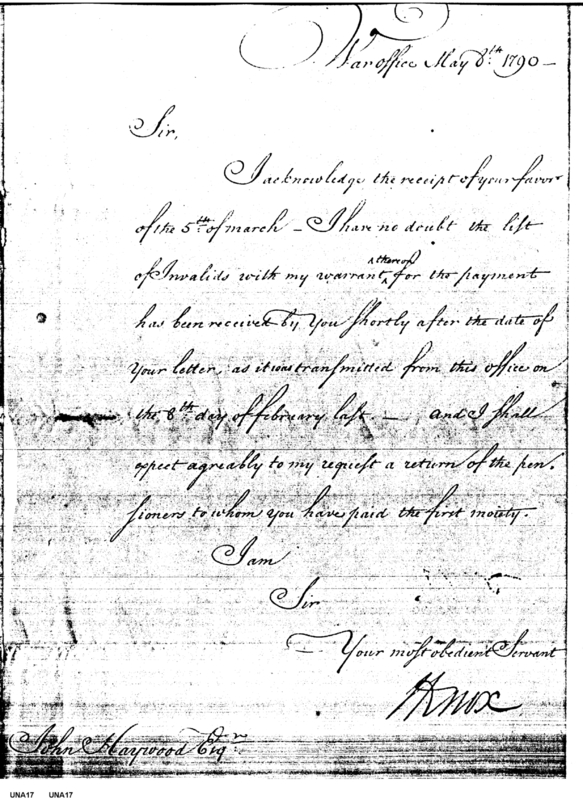 War office May 8th 1790 —
Sir,
I acknowledge the receipt of your favor
of the 5th of march – I have no doubt the list
thereof
of Invalids with my warrant ^ for the payment
has been received by You shortly after the date of
Your letter, as it was transmitted from this office on
the 8th day of february last – and I shall
expect agreably to my request a return of the pen-
sioners to whom you have paid the first moiety.
I am
Sir
Your most obedient Servant
HKnox
John Haywood Esqr
UNA17 UNA17